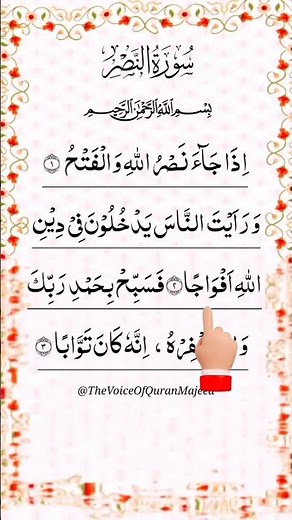 سُورَةُ النَّصْرِ
بِسْمِ اللهِ الرَّحْمٰنِ الرَّحِيْمِ
اِذَا جَآءَ نَصْرُ اللهِ وَالْفَتْحُ ۝١
وَرَاَيْتَ النَّاسَ يَدْخُلُوْنَ فِيْ دِيْنِ
اللهِ اَفْوَاجًا ۝٢ فَسَبِّحْ بِحَمْدِ رَبِّكَ
، اِنَّهٗ كَانَ تَوَّابًا ۝٣
@TheVoiceOfQuranMajeed